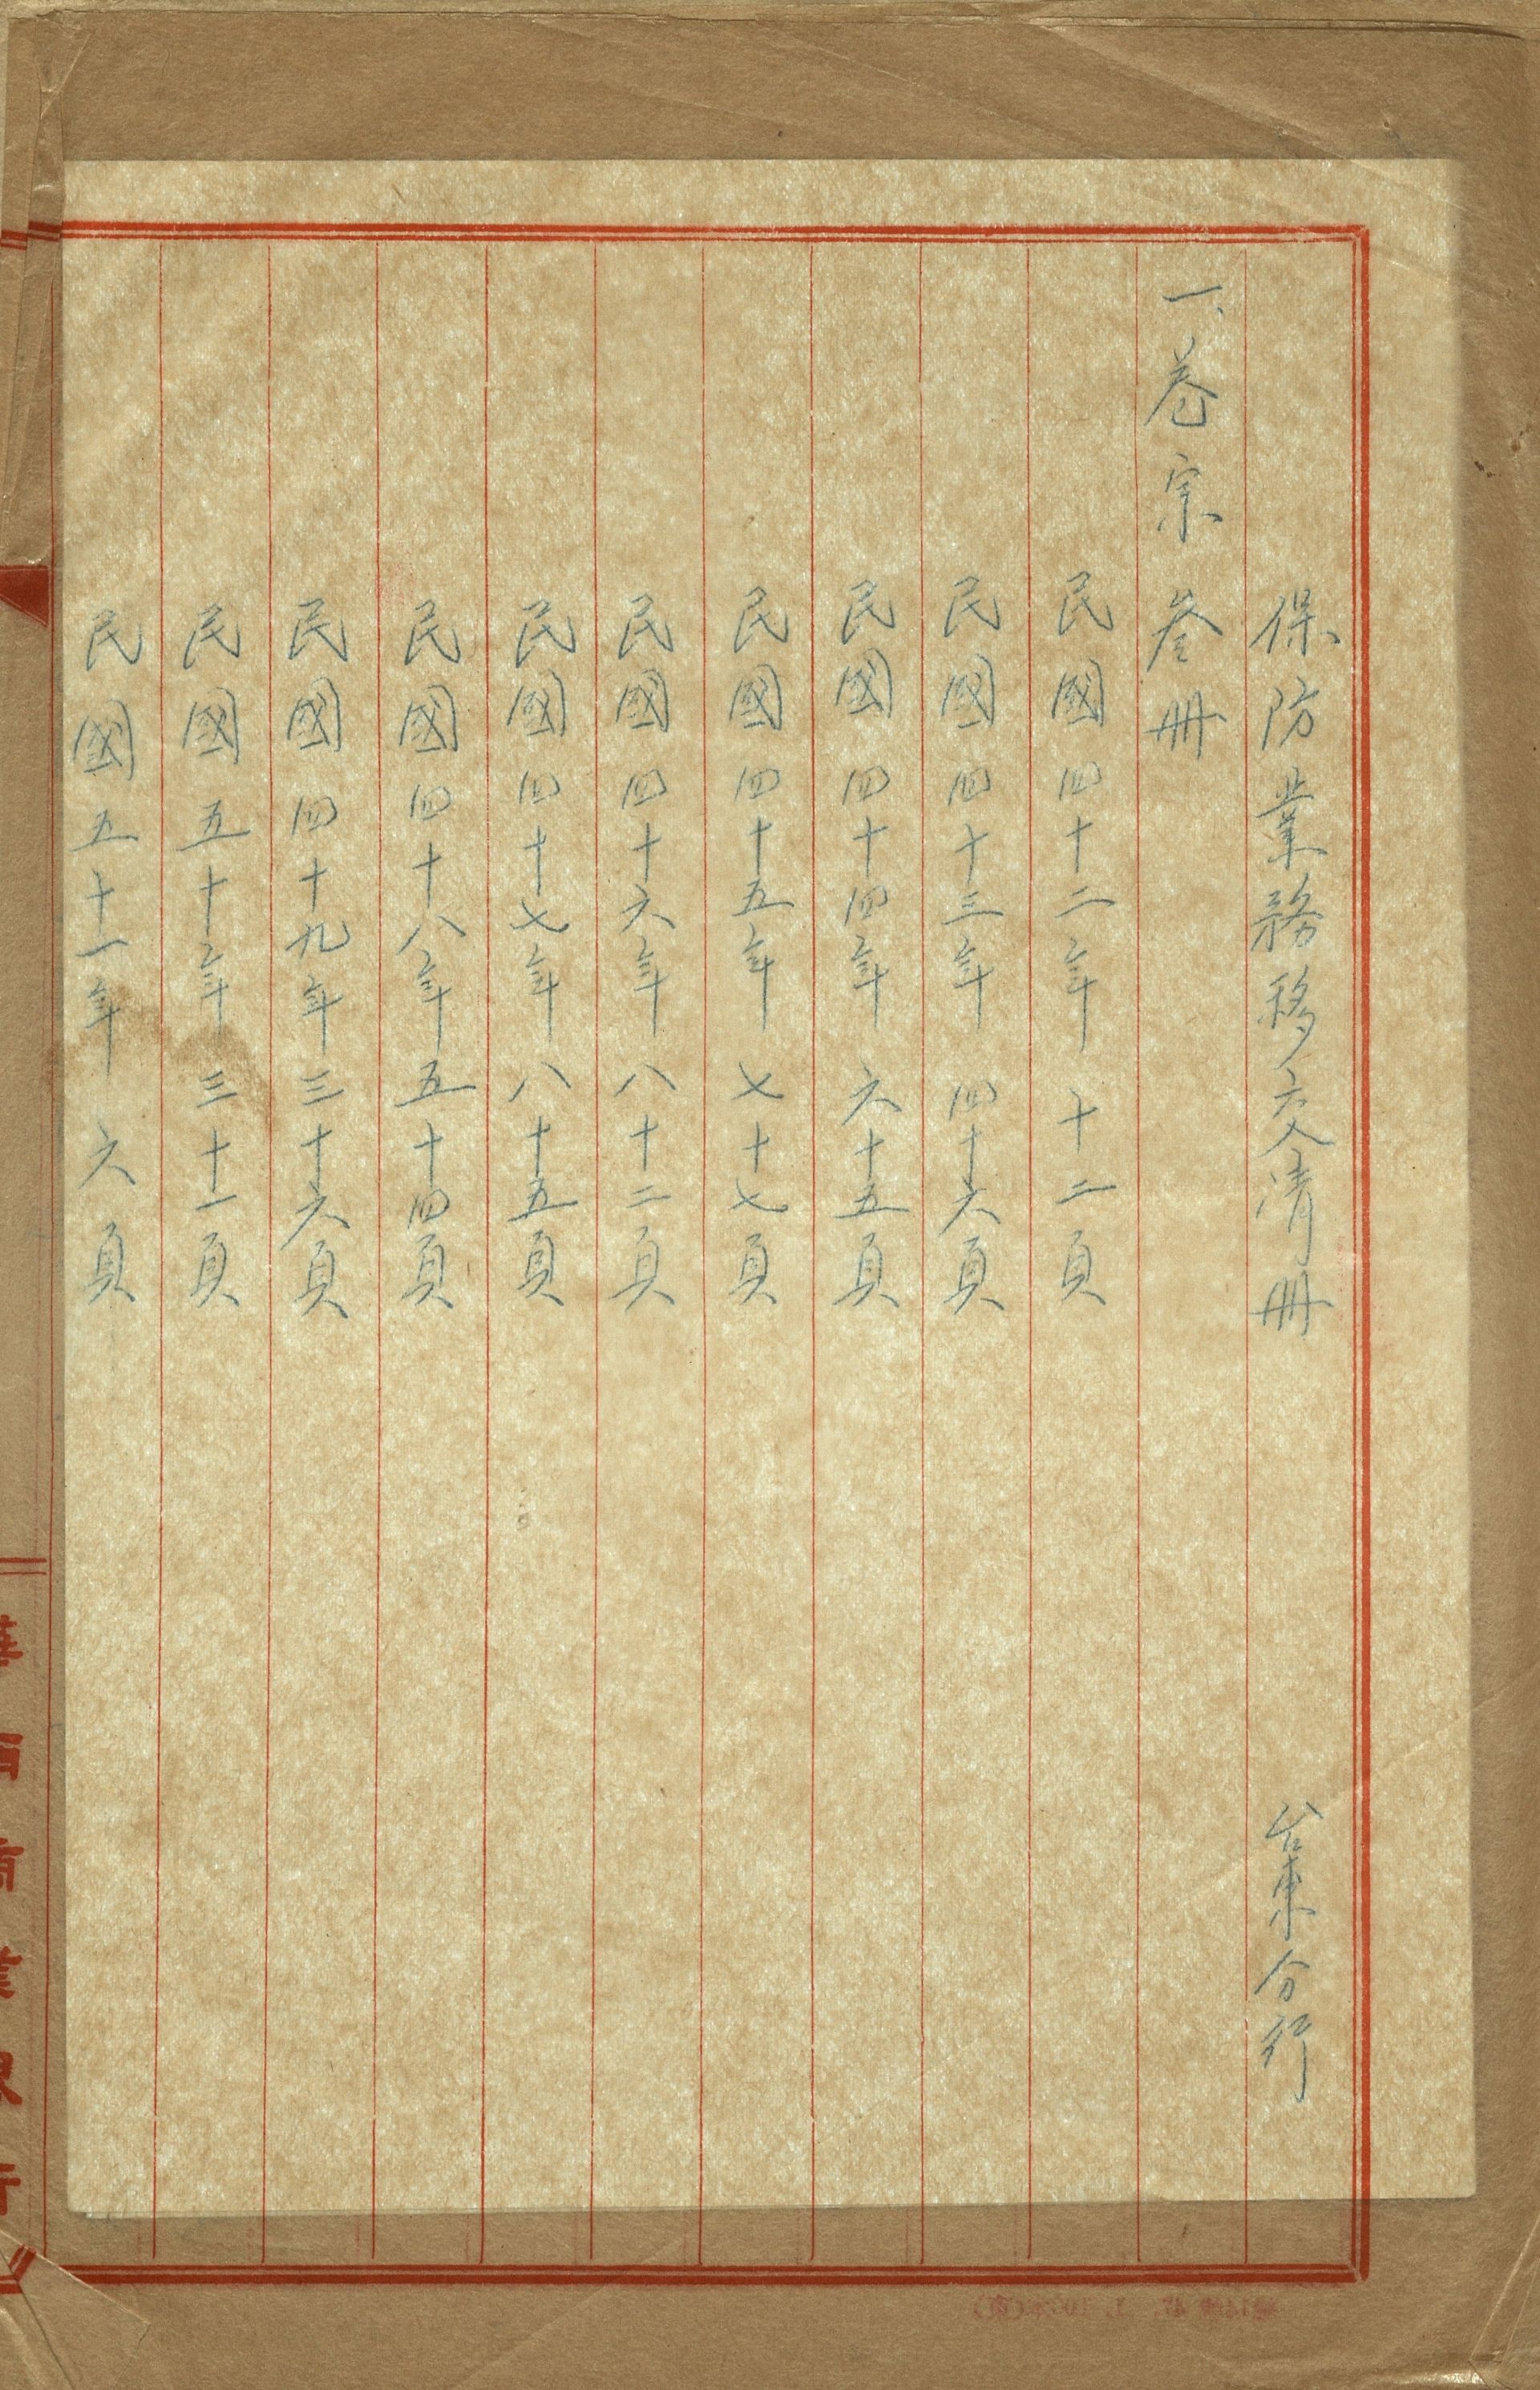 保防業務移交清冊 台東分行
一、卷宗 叁冊
民國四十二年 十二頁
民國四十三年 四十六頁
民國四十四年 六十五頁
民國四十五年 七十七頁
民國四十六年 八十二頁
民國四十七年 八十五頁
民國四十八年 五十四頁
民國四十九年 三十六頁
民國五十年 三十一頁
民國五十一年 六頁